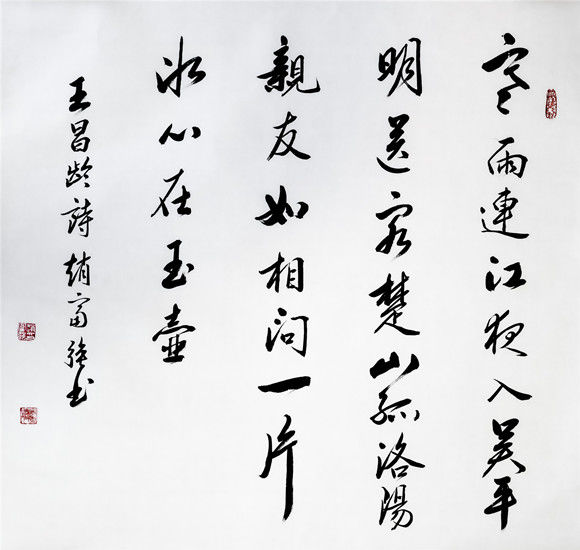 寒雨連江夜入吴平
明送客楚山孤洛陽
親友如相问一片
冰心在玉壶
王昌龄詩趙富強书